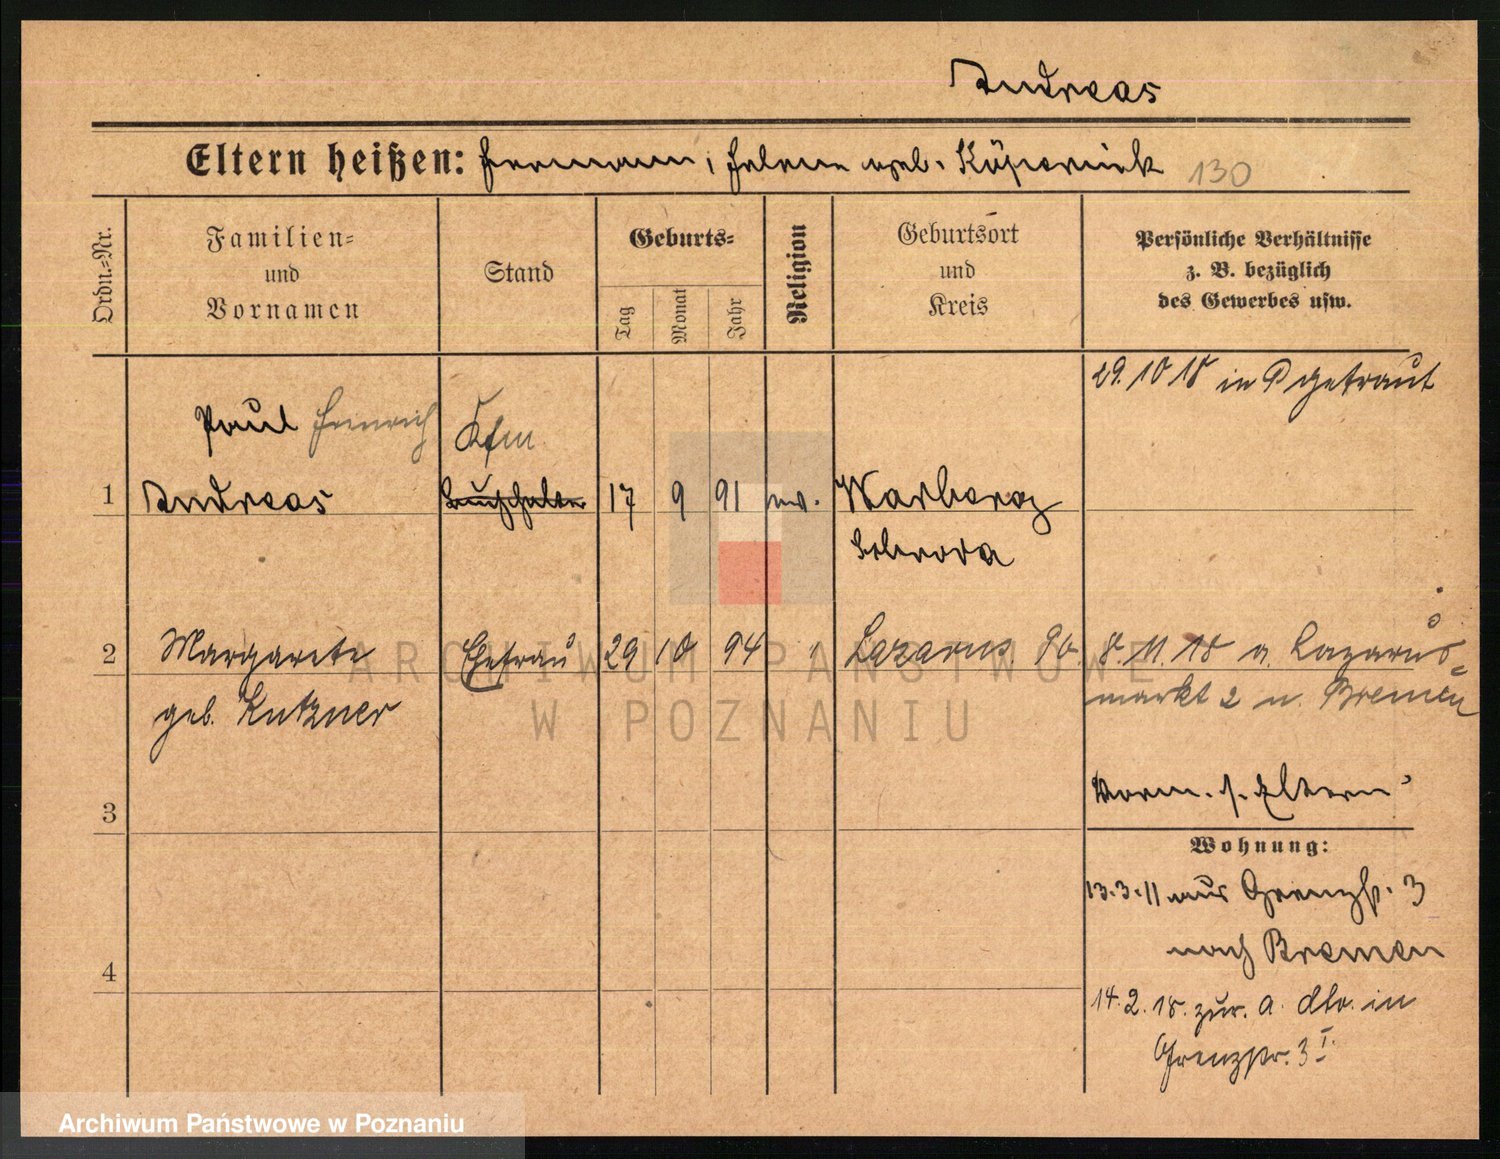 Andreas
Eltern heißen: Hermann, Helene geb. Köpernick 130
Ordn.=Nr.
Familien=
und
Vornamen
Stand
Geburts=
Tag
Monat
Jahr
Religion
Geburtsort
und
Kreis
Persönliche Verhältnisse
z. B. bezüglich
des Gewerbes usw.
29. 10 18 in P getraut
Paul Heinrich Kfm
1 Andreas Buchhalter 17 9 91 ev. Warberg
Schroda
2 Margarete Ehefrau 29 10 94 Lazarus 8. 11. 18 a. Lazarus=
geb. Kutzner markt 2 n. Bremen
3 Vorm. s. Eltern
Wohnung:
13.3.11 aus Grenzstr. 3
nach Bremen
4
14. 2. 18. zur. a. dto. in
Grenzstr. 3 I.
ARCHIWUM PAŃSTWOWE
W POZNANIU
Archiwum Państwowe w Poznaniu